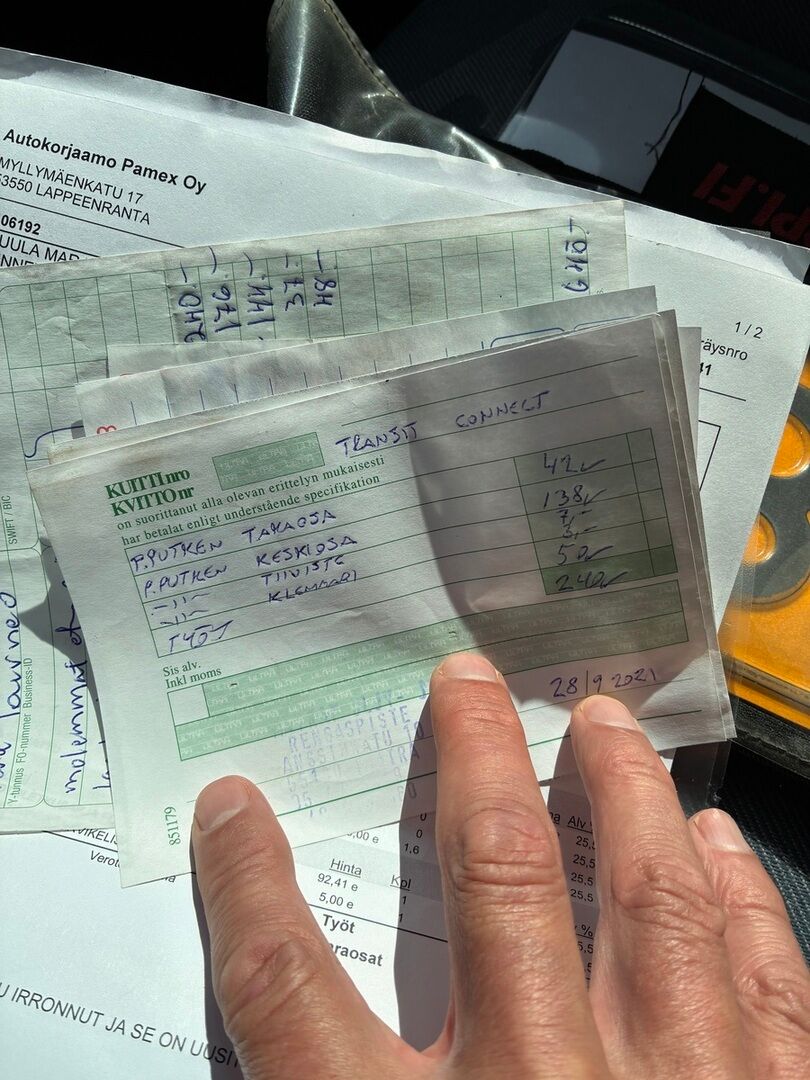 Autokorjaamo Pamex Oy
MYLLYMÄENKATU 17
53550 LAPPEENRANTA
06192
240.-
176.-
144.-
37.-
48.-
640.-
1 / 2
SWIFT / BIC
Y-tunnus FO-nummer Business-ID
molemmat
KUITTI nro
KVITTO nr
TRANSIT CONNECT
on suoritettu alla olevan erittelyn mukaisesti
har betalat enligt understående specifikation
P.PUTKEN TAKAOSA 42
P.PUTKEN KESKIOSA 138
-11- TIIVISTE 7,-
-11- KLEMMARI 3,-
TYÖT 50
240
Sis alv.
Inkl moms
28/9 2021
RENGASPISTE
851179
0
0
1,6
Hinta Kpl Alv
92,41 e 1
5,00 e 1
25,5
25,5
25,5
25,5
%
Työt
IRRONNUT JA SE ON